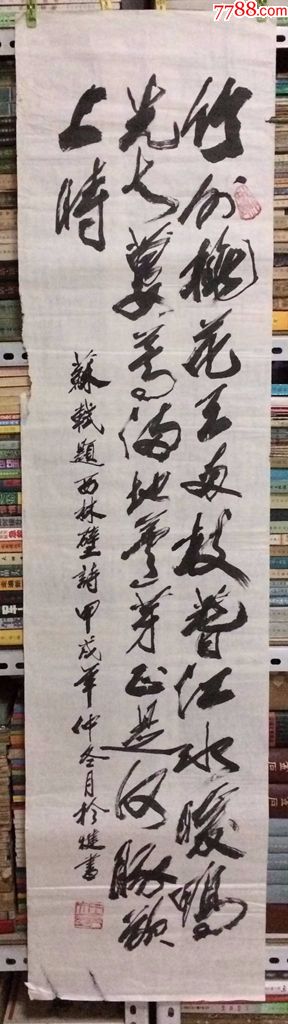 7788.com
竹外桃花三兩枝春江水暖鴨
先知蔞蒿滿地蘆芽正是河豚欲
上時
蘇軾題西林壁詩甲戌年仲冬月於書